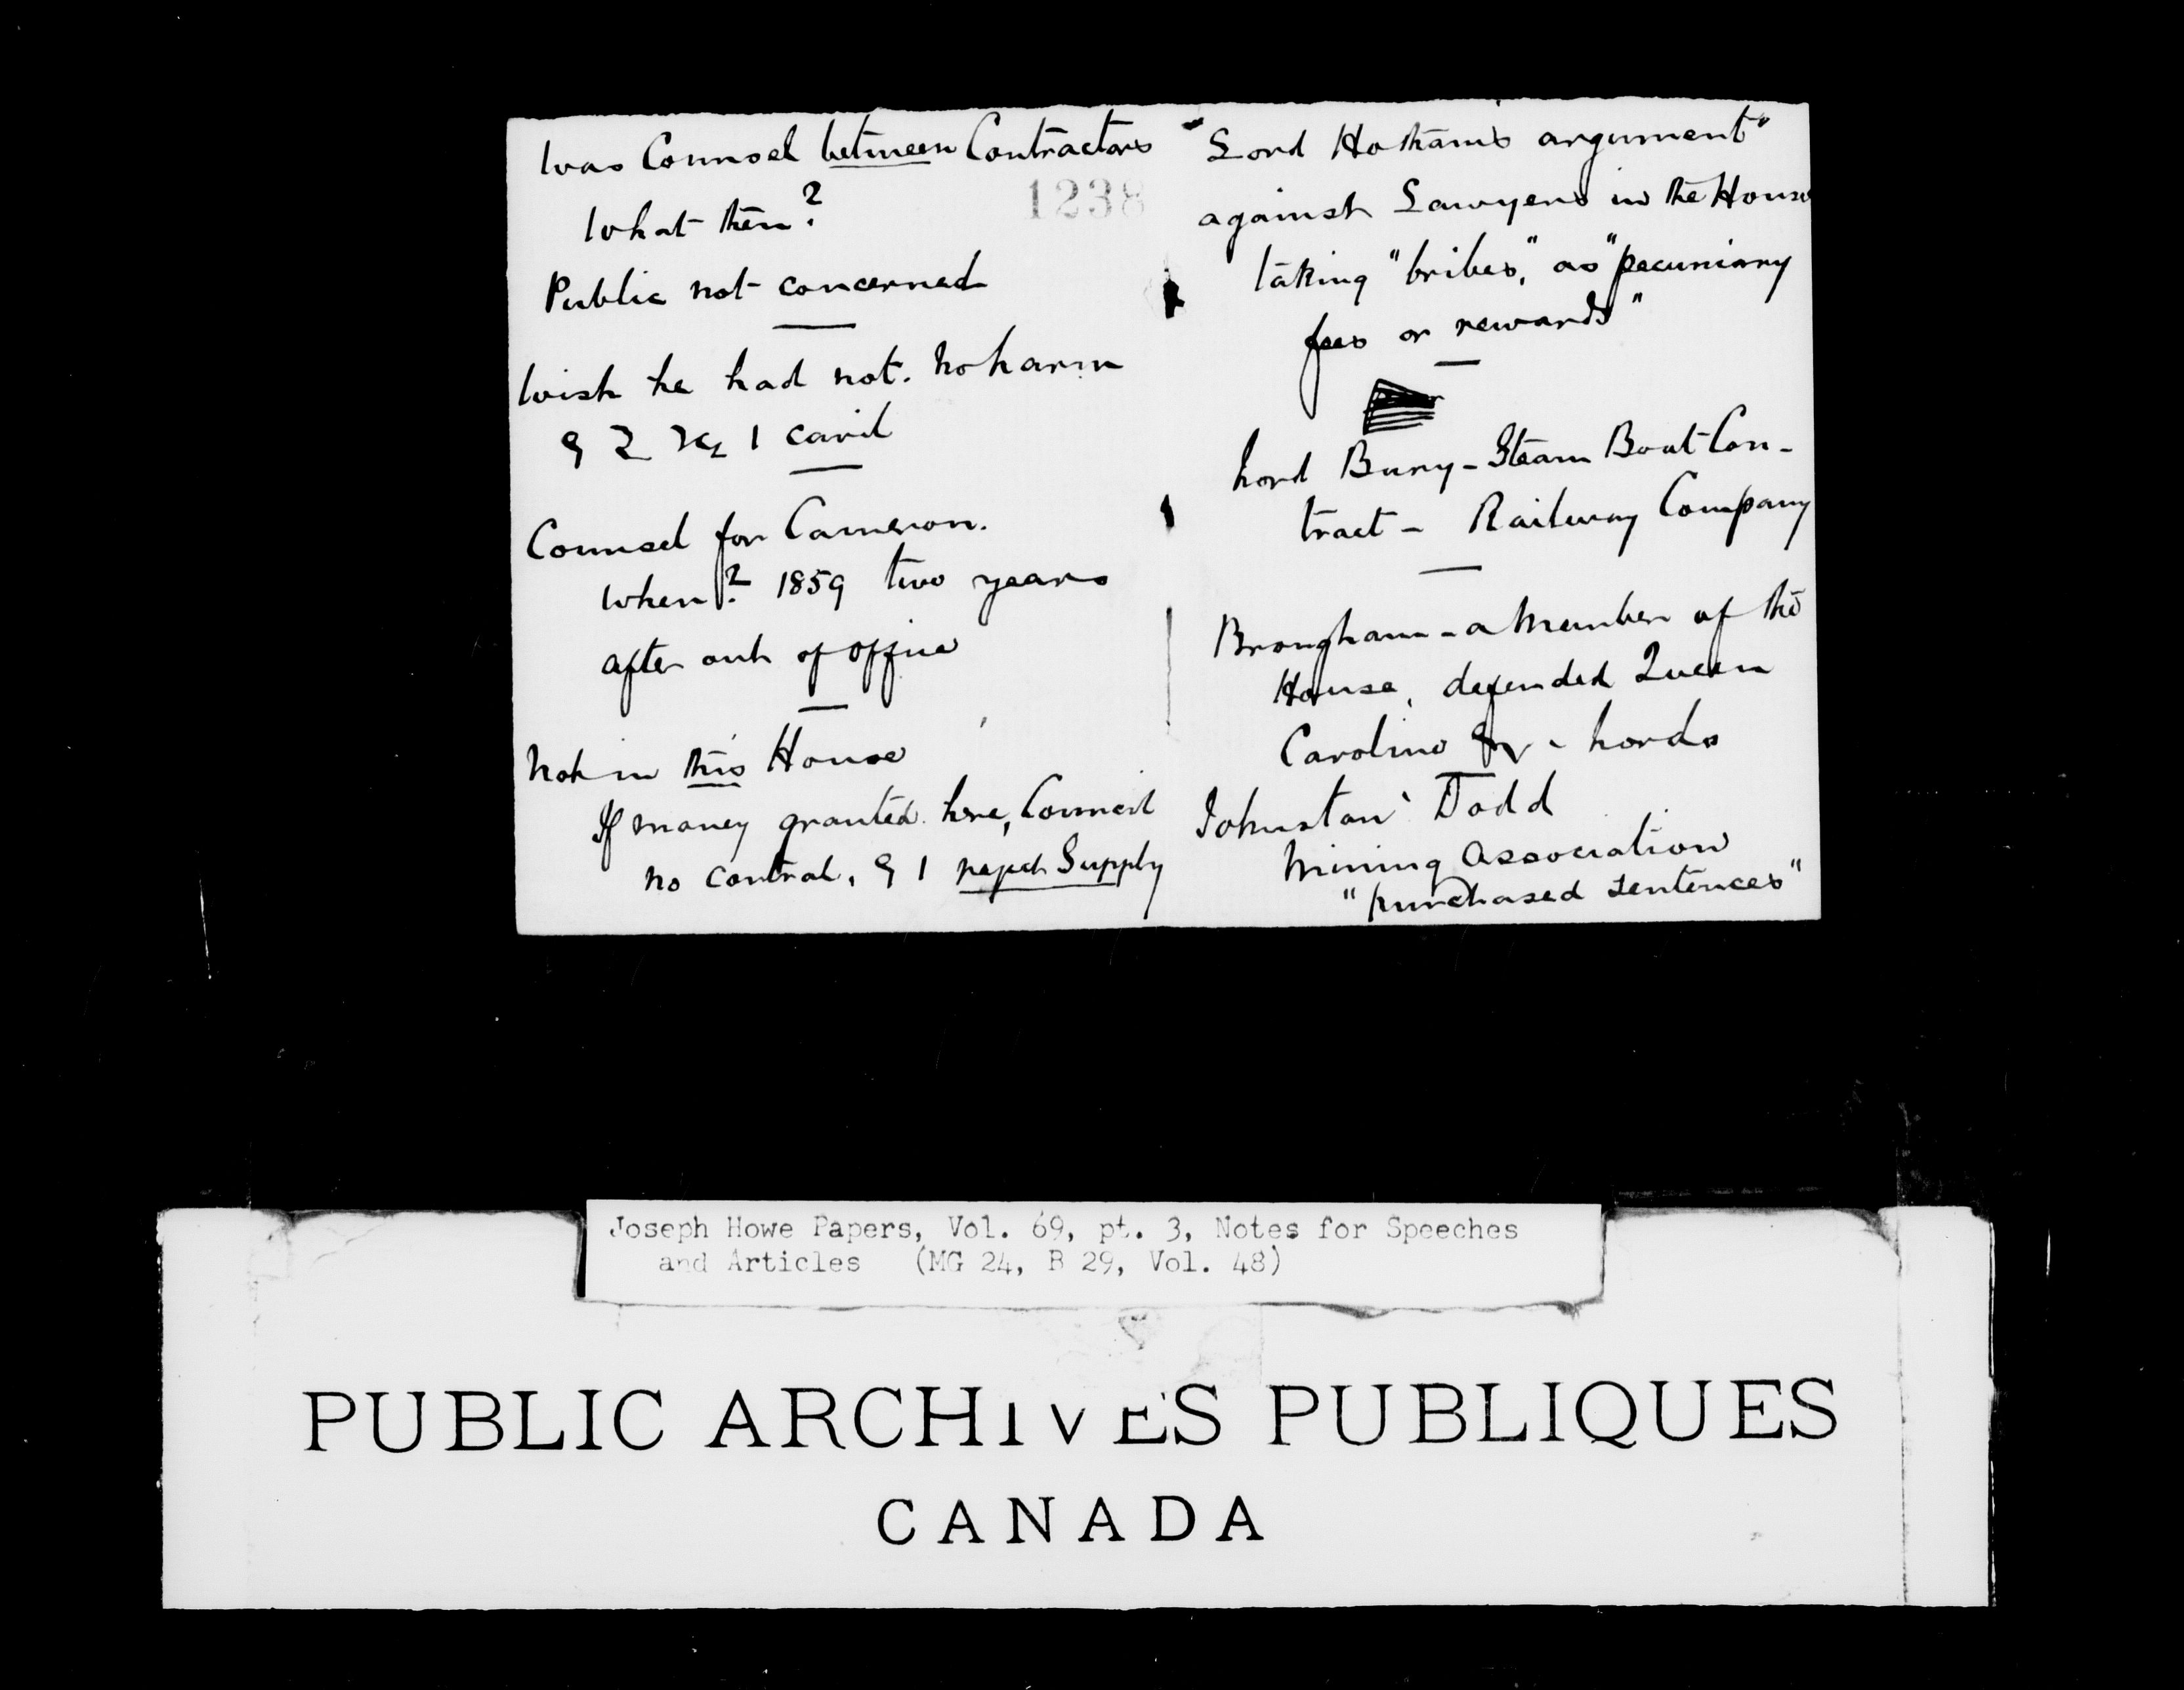 Was Counsel between Contractors
1238
What then?
Public not concerned
Wish he had not. No harm
cavil
Counsel for Cameron.
When? 1859 two years
after out of office
Not in this House
If money granted here, Council
no control, reject Supply
"Lord Hotham's argument"
against Lawyers in the House
taking "bribes," as "pecuniary
fees or rewards"
Lord Bury - Steam Boat Con-
tract - Railway Company
Brougham - a Member of the
House, defended Queen
Caroline Lords
Johnston Dodd
Mining Association
"purchased sentences"
Joseph Howe Papers, Vol. 69, pt. 3, Notes for Speeches
and Articles (MG 24, B 29, Vol. 48)
PUBLIC ARCHIVES PUBLIQUES
CANADA